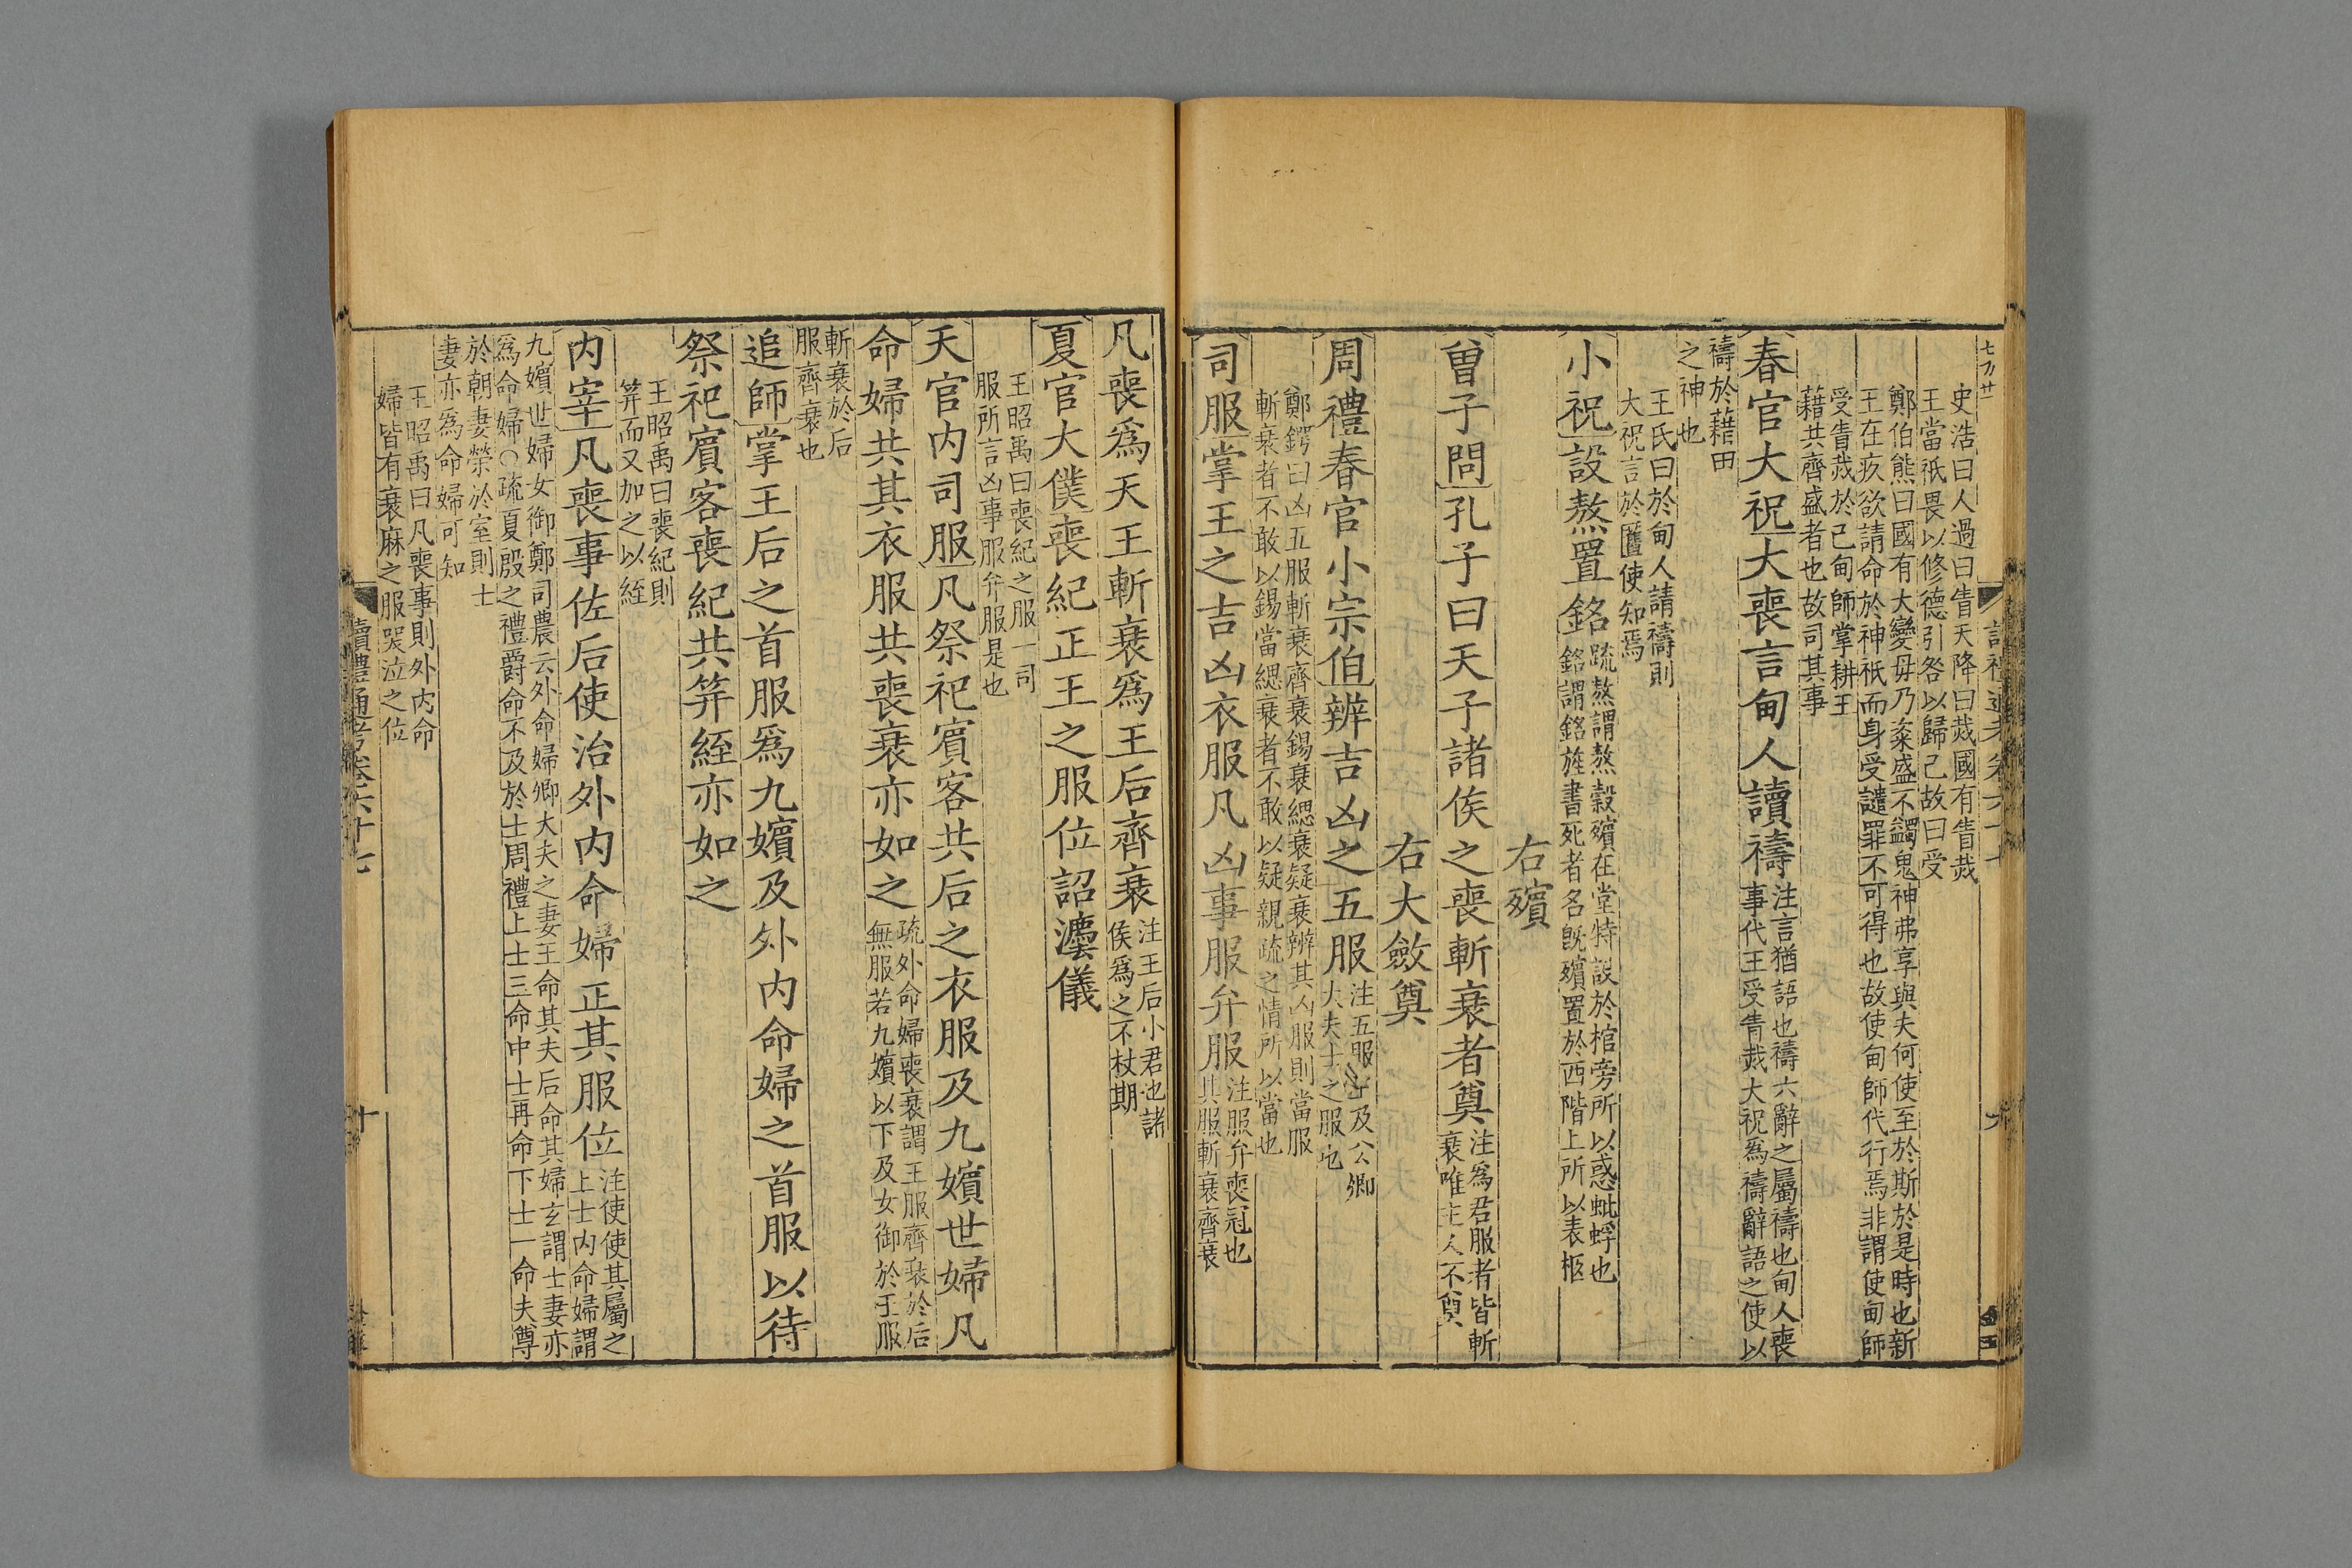 史浩曰人過曰眚天降曰烖國有眚烖
王當祇畏以修德引咎以歸己故曰受
鄭伯熊曰國有大變毋乃粢盛不蠲鬼神弗享與夫何使至於斯於是時也新
王在疚欲請命於神祇而身受譴罪不可得也故使甸師代行焉非謂使甸師
受眚烖於己甸師掌耕王
藉共齊盛者也故司其事
春官大祝大喪言甸人讀禱注言猶語也禱六辭之屬禱也甸人喪
事代王受眚烖大祝爲禱辭語之使以
禱於藉田
之神也
王氏曰於甸人請禱則
大祝言於匶使知焉
小祝設熬置銘疏熬謂熬穀殯在堂特設於棺旁所以惑蚍蜉也
銘謂銘旌書死者名旣殯置於西階上所以表柩
右殯
曾子問孔子曰天子諸侯之喪斬衰者奠注爲君服者皆斬
衰唯主人不奠
右大斂奠
周禮春官小宗伯辨吉凶之五服注五服王及公卿
大夫士之服也
鄭鍔曰凶五服斬衰齊衰錫衰緦衰疑衰辨其凶服則當服
斬衰者不敢以錫當緦衰者不敢以疑親疏之情所以當也
司服掌王之吉凶衣服凡凶事服弁服注服弁喪冠也
其服斬衰齊衰
凡喪爲天王斬衰爲王后齊衰注王后小君也諸
侯爲之不杖期
夏官大僕喪紀正王之服位詔灋儀
王昭禹曰喪紀之服一司
服所言凶事服弁服是也
天官内司服凡祭祀賓客共后之衣服及九嬪世婦凡
命婦共其衣服共喪衰亦如之疏外命婦喪衰謂王服齊衰於后
無服若九嬪以下及女御於王服
斬衰於后
服齊衰也
追師掌王后之首服爲九嬪及外内命婦之首服以待
祭祀賓客喪紀共筓絰亦如之
王昭禹曰喪紀則
筓而又加之以絰
内宰凡喪事佐后使治外内命婦正其服位注使使其屬之
上士内命婦謂
九嬪世婦女御鄭司農云外命婦卿大夫之妻王命其夫后命其婦玄謂士妻亦
爲命婦○疏夏殷之禮爵命不及於士周禮上士三命中士再命下士一命夫尊
於朝妻榮於室則士
妻亦爲命婦可知
王昭禹曰凡喪事則外内命
婦皆有衰麻之服哭泣之位
讀禮通考卷六十七
十